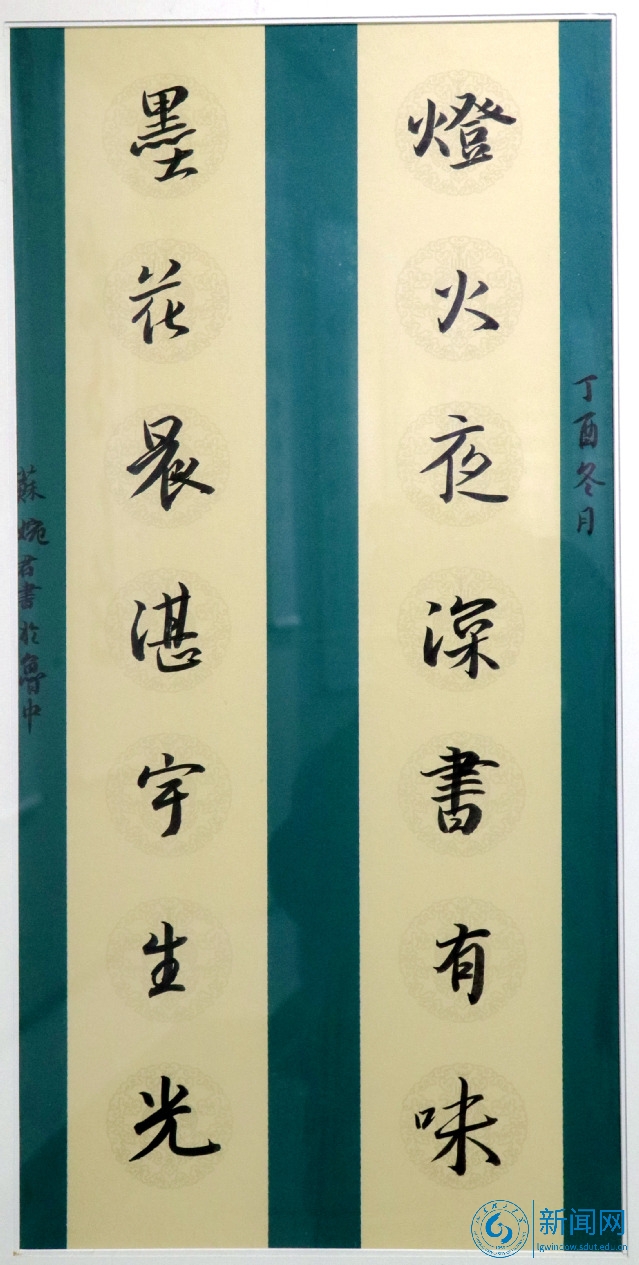 丁酉冬月
燈火夜深書有味
墨花晨湛宇生光
蘇婉君書於魯中
新闻网
lgwindow.sdut.edu.cn